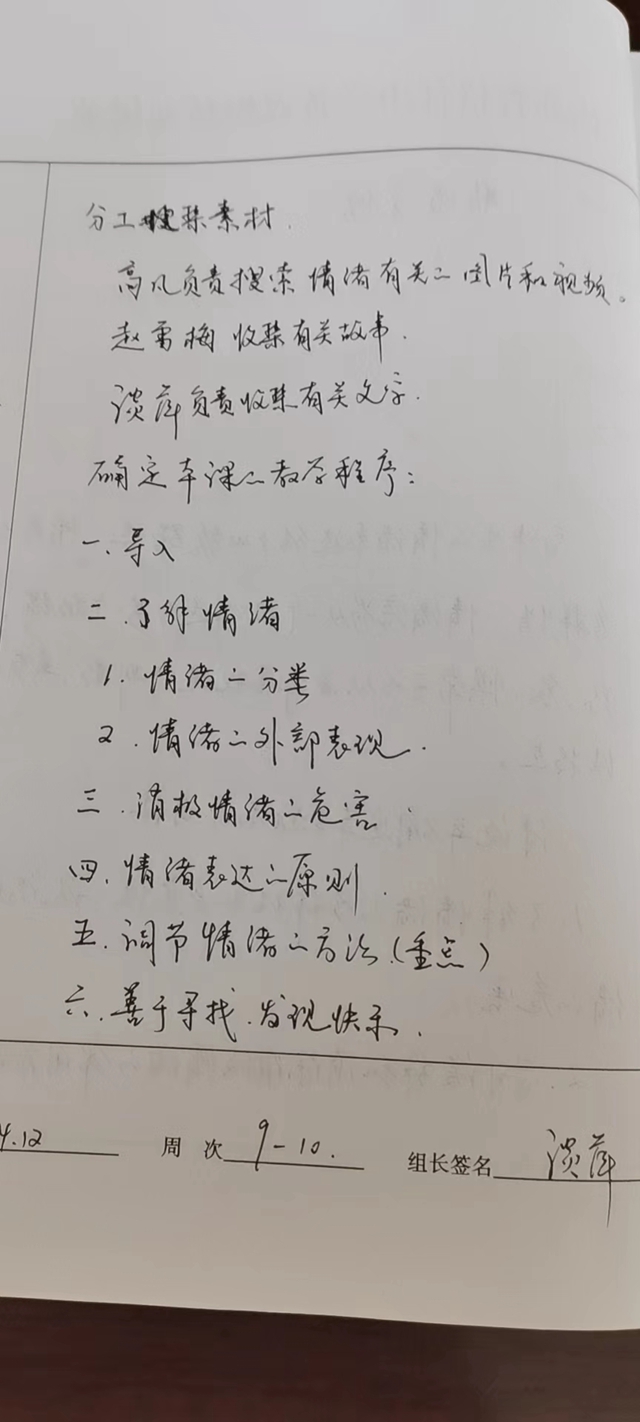 分工搜集素材.
高凡负责搜索情绪有关的图片和视频。
赵雪梅收集有关故事.
谈萍负责收集有关文字.
确定本课的教学程序:
一.导入
二.了解情绪
1.情绪的分类
2.情绪的外部表现.
三.消极情绪的危害.
四.情绪表达的原则.
五.调节情绪的方法.(重点)
六.善于寻找.发现快乐.
4.12 周 次 9-10. 组长签名 谈萍